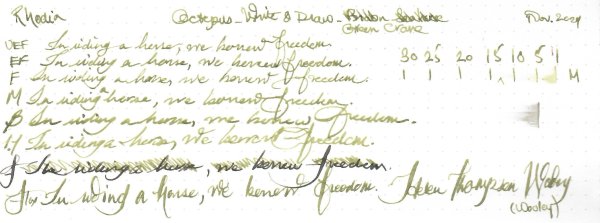 Rhodia Octopus Write & Draw - Green Crane Nov. 2024
UEF In riding a horse, we borrow freedom.
EF In riding a horse, we borrow freedom.
F In riding a horse, we borrow freedom.
M In riding a horse, we borrow freedom.
B In riding a horse, we borrow freedom.
H In riding a horse, we borrow freedom.
J In riding a horse, we borrow freedom.
In riding a Horse, we borrow freedom. Helen Thompson
(Wooley)
30 25 20 15 10 5 1
M